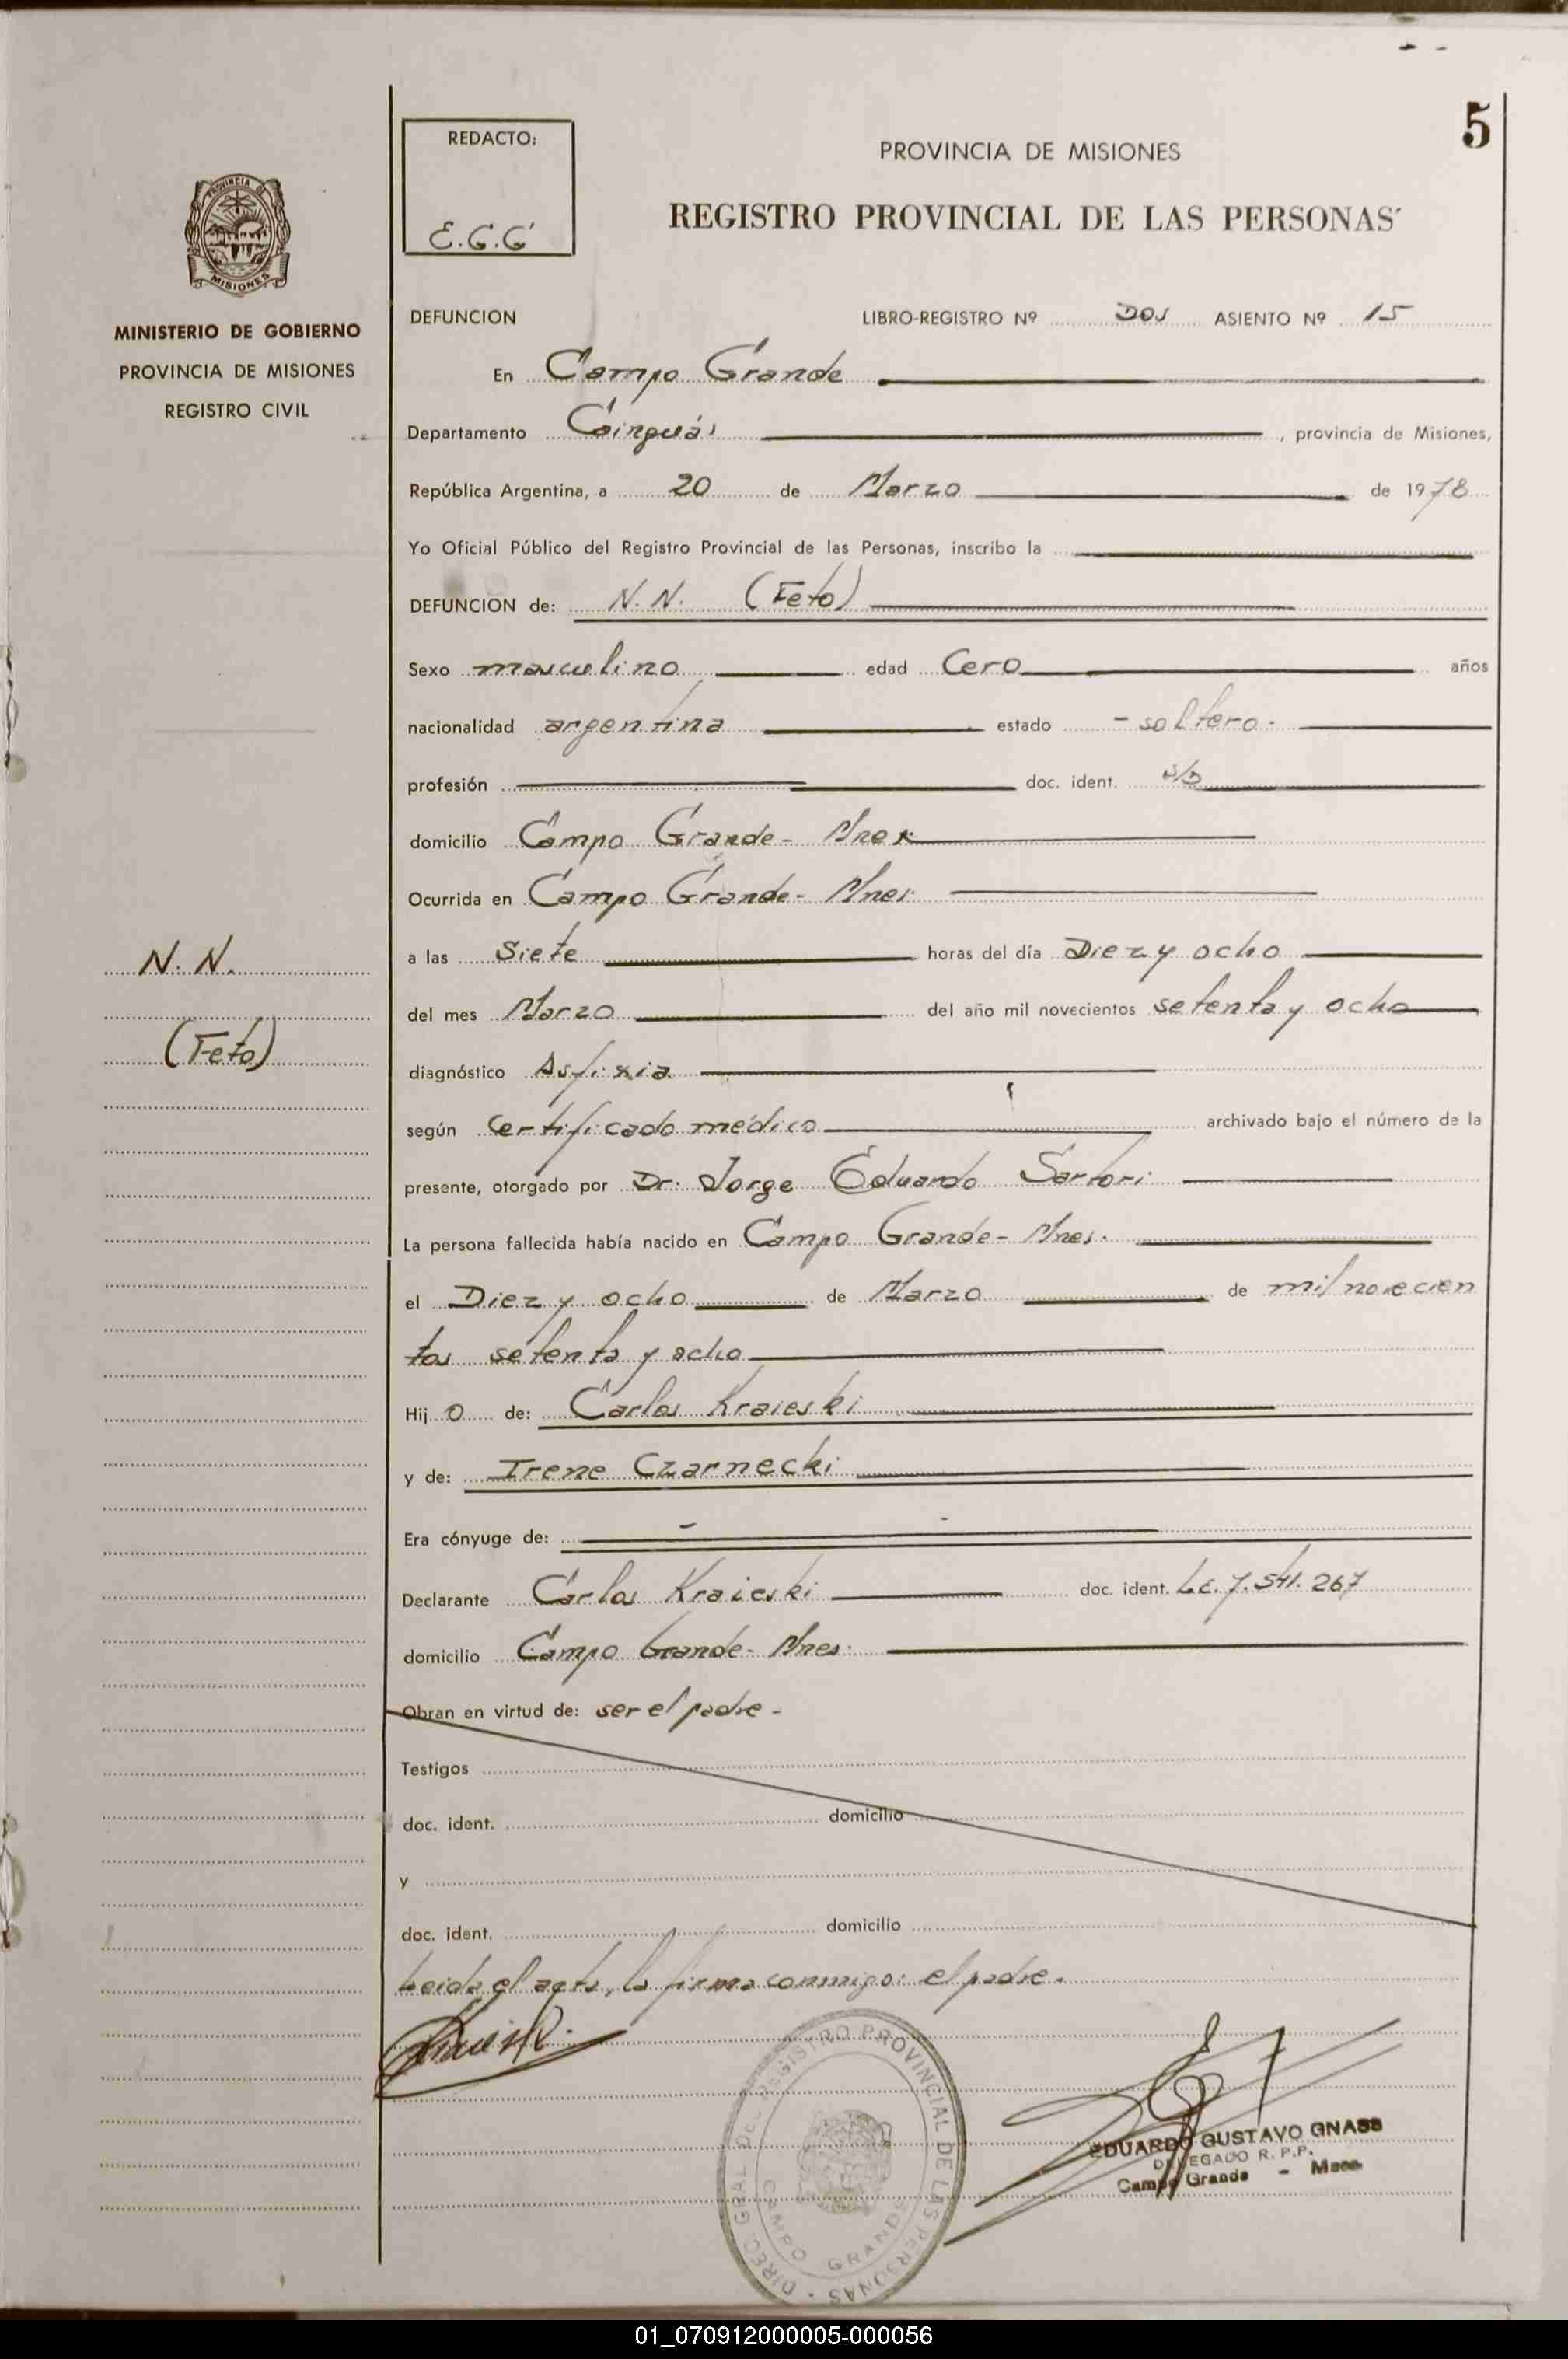 5
REDACTO:
E.G.G
PROVINCIA DE MISIONES
REGISTRO PROVINCIAL DE LAS PERSONAS
PROVINCIA DE
MISIONES
MINISTERIO DE GOBIERNO
PROVINCIA DE MISIONES
REGISTRO CIVIL
DEFUNCION LIBRO-REGISTRO Nº Dos ASIENTO Nº 15
En Campo Grande
Departamento Cainguás, provincia de Misiones,
República Argentina, a 20 de Marzo de 1978
Yo Oficial Público del Registro Provincial de las Personas, inscribo la
DEFUNCION de: N.N. (Feto)
Sexo masculino edad Cero años
nacionalidad argentina estado - soltero -
profesión doc. ident. s/D
domicilio Campo Grande - Mnes
Ocurrida en Campo Grande - Mnes
N.N.
(Feto)
a las Siete horas del día Diez y ocho
del mes Marzo del año mil novecientos setenta y ocho
diagnóstico Asfixia
según Certificado médico archivado bajo el número de la
presente, otorgado por Dr. Jorge Eduardo Sartori
La persona fallecida había nacido en Campo Grande - Mnes.
el Diez y ocho de Marzo de mil novecien
tos setenta y ocho
Hij o de: Carlos Kraieski
y de: Irene Czarnecki
Era cónyuge de:
Declarante Carlos Kraieski doc. ident. L.E. 7.541.267
domicilio Campo Grande - Mnes.
Obran en virtud de: ser el padre -
Testigos
doc. ident. domicilio
y
doc. ident. domicilio
Leida el acta, la firma conmigo: el padre.
DIREC. GRAL. DEL REGISTRO PROVINCIAL DE LAS PERSONAS
CAMPO GRANDE
EDUARDO GUSTAVO GNASS
DELEGADO R. P.P.
Campo Grande - Mnes.
01_070912000005-000056